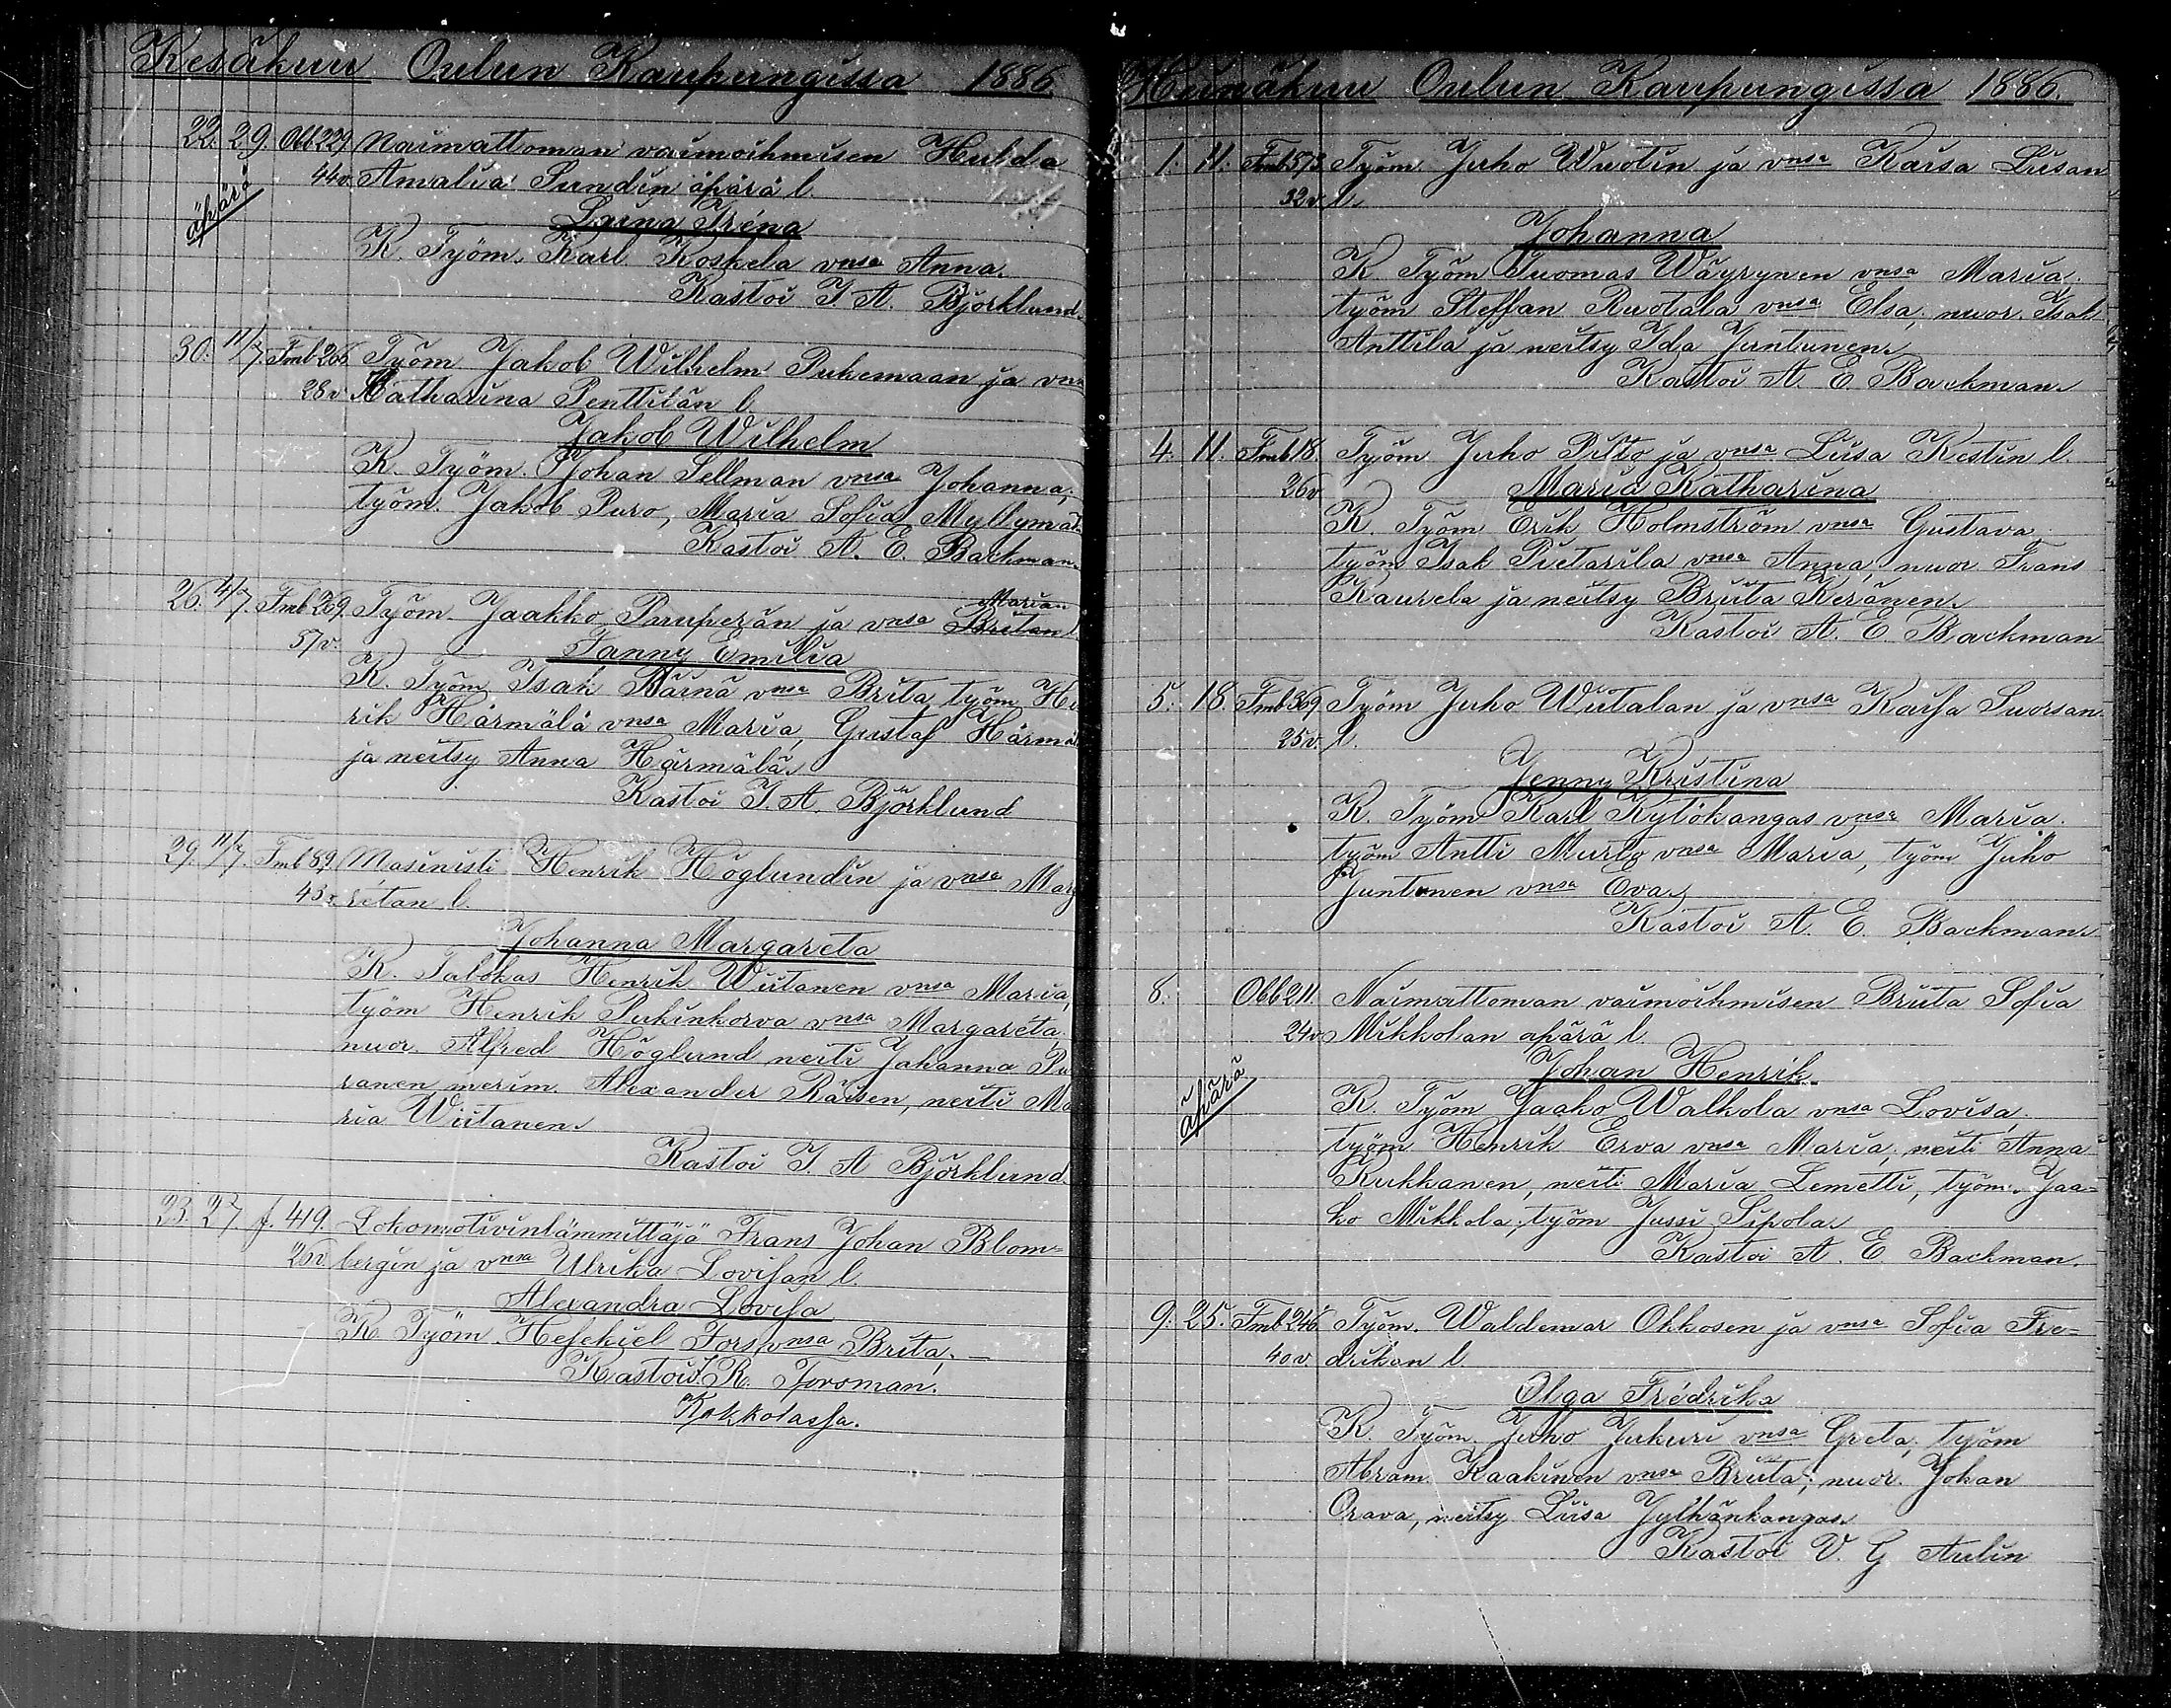 Kesäkuu Oulun Kaupungissa 1886.
22. 29. Obb 229 Naimattoman vaimoihmisen Hulda
44v. Amalia Sundin äpärä l.
äpärä
Laina Iréna
K. Työm. Karl Koskela vnsa Anna.
Kastoi J. A. Björklund.
30. 11/7. Tmb 266 Työm Jakob Wilhelm Puhemaan ja vnsa
28v Katharina Penttilän l.
Jakob Wilhelm
K. Työm. Johan Sellman vnsa Johanna;
työm. Jakob Puro, Maria Sofia Myllymäk
Kastoi A. E. Backman.
26. 4/7. Tmb 269. Työm. Jaakko Pauperän ja vnsa Marian
Britan l
37v.
Fanny Emilia
K. Työm Isak Bäinä vnsa Brita, työm He
rik Härmälä vnsa Maria, Gustaf Härmäl
ja neitsy Anna Härmälä.
Kastoi J. A. Björklund
29. 11/7. Tmb 89, Masinisti Henrik Höglundin ja vnsa Marg
43v retan l.
Johanna Margareta
K. Talokas Henrik Wiitanen vnsa Maria,
työm Henrik Pukinkorva vnsa Margareta,
nuor. Alfred Höglund neiti Johanna Pu
ranen merim. Alexander Räisen, neiti Ma
ria Wiitanen.
Kastoi J. A Björklund.
23. 27 f. 419. Lokomotivinlämmittäjä Frans Johan Blom=
25v. bergin ja vnsa Ulrika Lovisan l.
Alexandra Lovisa
K. Työm. Hesekiel Fors vnsa Brita; —
Kastoi J. R. Forsman.
Kokkolassa.
Heinäkuu Oulun Kaupungissa 1886.
1. 11. Tmb 573 Työm. Juho Wuotin ja vnsa Kaisa Liisan
32v. l.
Johanna
K Työm Tuomas Wäyrynen vnsa Maria,
työm Steffan Ruotala vnsa Elsa, nuor. Isak
Anttila ja neitsy Ida Juntunen.
Kastoi A. E Backman.
4. 11. Tmb 18. Työm Juho Piito ja vnsa Liisa Kestin l.
26v
Maria Katharina
K. Työm Erik Holmström vnsa Gustava.
työm Isak Pietarila vnsa Anna, nuor Frans
Kaurela ja neitsy Briita Keränen.
Kastoi A. E. Backman
5. 18. Tmb 369 Työm Juho Wiitalan ja vnsa Kaisa Suorsan
25v. l.
Jenny Kristina
K. Työm Karl Kylökangas vnsa Maria.
työm Antti Murto vnsa Maria, työm Juho
Juntunen vnsa Eva.
Kastoi A. E. Backman.
8. Obb 211. Naimattoman vaimoihmisen Briita Sofia
24v Mikkolan äpärä l.
äpärä
Johan Henrik.
K. Työm Jaako Walkola vnsa Lovisa,
työm Henrik Erva vnsa Maria, neiti Anna
Kukkanen, neiti Maria Lemetti, työm. Jaa=
ko Mikkola, työm Jussi Sipola.
Kastoi A. E. Backman.
9. 25. Tmb 246 Työm. Waldemar Okkosen ja vnsa Sofia Fre=
40v. drikan l.
Olga Frédrika
K. Työm. Juho Jukuri vnsa Greta, työm
Abram Kaakinen vnsa Briita; nuor. Johan
Orava, neitsy Liisa Jylhänkangas.
Kastoi V. G Aulin